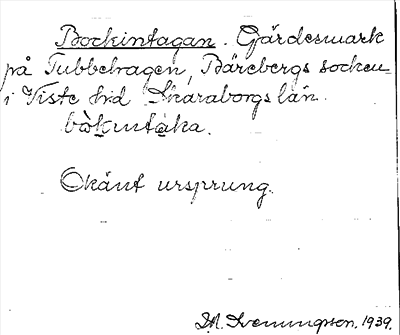 Bockintagan. Gärdesmark
på Tubbetragen, Bärebergs socken
i Viste hrd Skaraborgs län.
bòkintàka.
Okänt ursprung.
Svenningson. 1939.